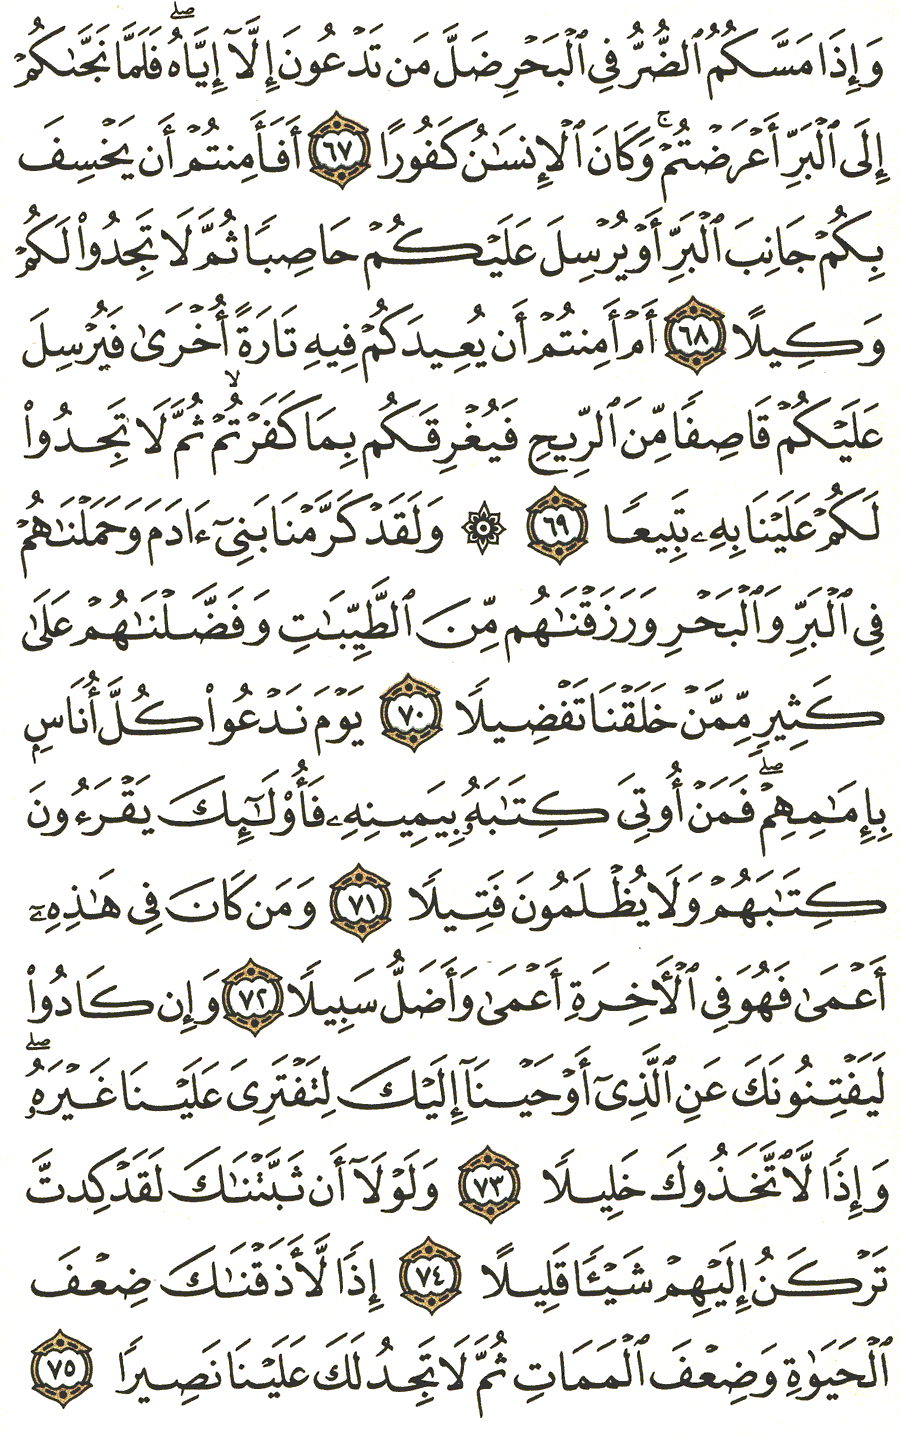 وَإِذَا مَسَّكُمُ ٱلضُّرُّ فِى ٱلْبَحْرِ ضَلَّ مَن تَدْعُونَ إِلَّآ إِيَّاهُ ۖ فَلَمَّا نَجَّىٰكُمْ
إِلَى ٱلْبَرِّ أَعْرَضْتُمْ ۚ وَكَانَ ٱلْإِنسَـٰنُ كَفُورًا ٦٧ أَفَأَمِنتُمْ أَن يَخْسِفَ
بِكُمْ جَانِبَ ٱلْبَرِّ أَوْ يُرْسِلَ عَلَيْكُمْ حَاصِبًا ثُمَّ لَا تَجِدُوا۟ لَكُمْ
وَكِيلًا ٦٨ أَمْ أَمِنتُمْ أَن يُعِيدَكُمْ فِيهِ تَارَةً أُخْرَىٰ فَيُرْسِلَ
عَلَيْكُمْ قَاصِفًا مِّنَ ٱلرِّيحِ فَيُغْرِقَكُم بِمَا كَفَرْتُمْ ۙ ثُمَّ لَا تَجِدُوا۟
لَكُمْ عَلَيْنَا بِهِۦ تَبِيعًا ٦٩ ۞ وَلَقَدْ كَرَّمْنَا بَنِىٓ ءَادَمَ وَحَمَلْنَـٰهُمْ
فِى ٱلْبَرِّ وَٱلْبَحْرِ وَرَزَقْنَـٰهُم مِّنَ ٱلطَّيِّبَـٰتِ وَفَضَّلْنَـٰهُمْ عَلَىٰ
كَثِيرٍ مِّمَّنْ خَلَقْنَا تَفْضِيلًا ٧٠ يَوْمَ نَدْعُوا۟ كُلَّ أُنَاسٍۭ
بِإِمَـٰمِهِمْ ۖ فَمَنْ أُوتِىَ كِتَـٰبَهُۥ بِيَمِينِهِۦ فَأُو۟لَـٰٓئِكَ يَقْرَءُونَ
كِتَـٰبَهُمْ وَلَا يُظْلَمُونَ فَتِيلًا ٧١ وَمَن كَانَ فِى هَـٰذِهِۦٓ
أَعْمَىٰ فَهُوَ فِى ٱلْـَٔاخِرَةِ أَعْمَىٰ وَأَضَلُّ سَبِيلًا ٧٢ وَإِن كَادُوا۟
لَيَفْتِنُونَكَ عَنِ ٱلَّذِىٓ أَوْحَيْنَآ إِلَيْكَ لِتَفْتَرِىَ عَلَيْنَا غَيْرَهُۥ ۖ
وَإِذًا لَّٱتَّخَذُوكَ خَلِيلًا ٧٣ وَلَوْلَآ أَن ثَبَّتْنَـٰكَ لَقَدْ كِدتَّ
تَرْكَنُ إِلَيْهِمْ شَيْـًٔا قَلِيلًا ٧٤ إِذًا لَّأَذَقْنَـٰكَ ضِعْفَ
ٱلْحَيَوٰةِ وَضِعْفَ ٱلْمَمَاتِ ثُمَّ لَا تَجِدُ لَكَ عَلَيْنَا نَصِيرًا ٧٥